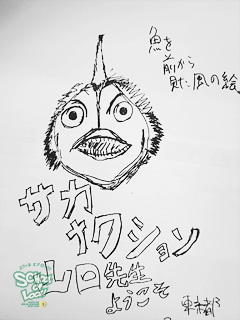 魚を
前から
見た風の絵
サカ
ナクション
山口先生
ようこそ
SCHOOL
OF
LOCK!